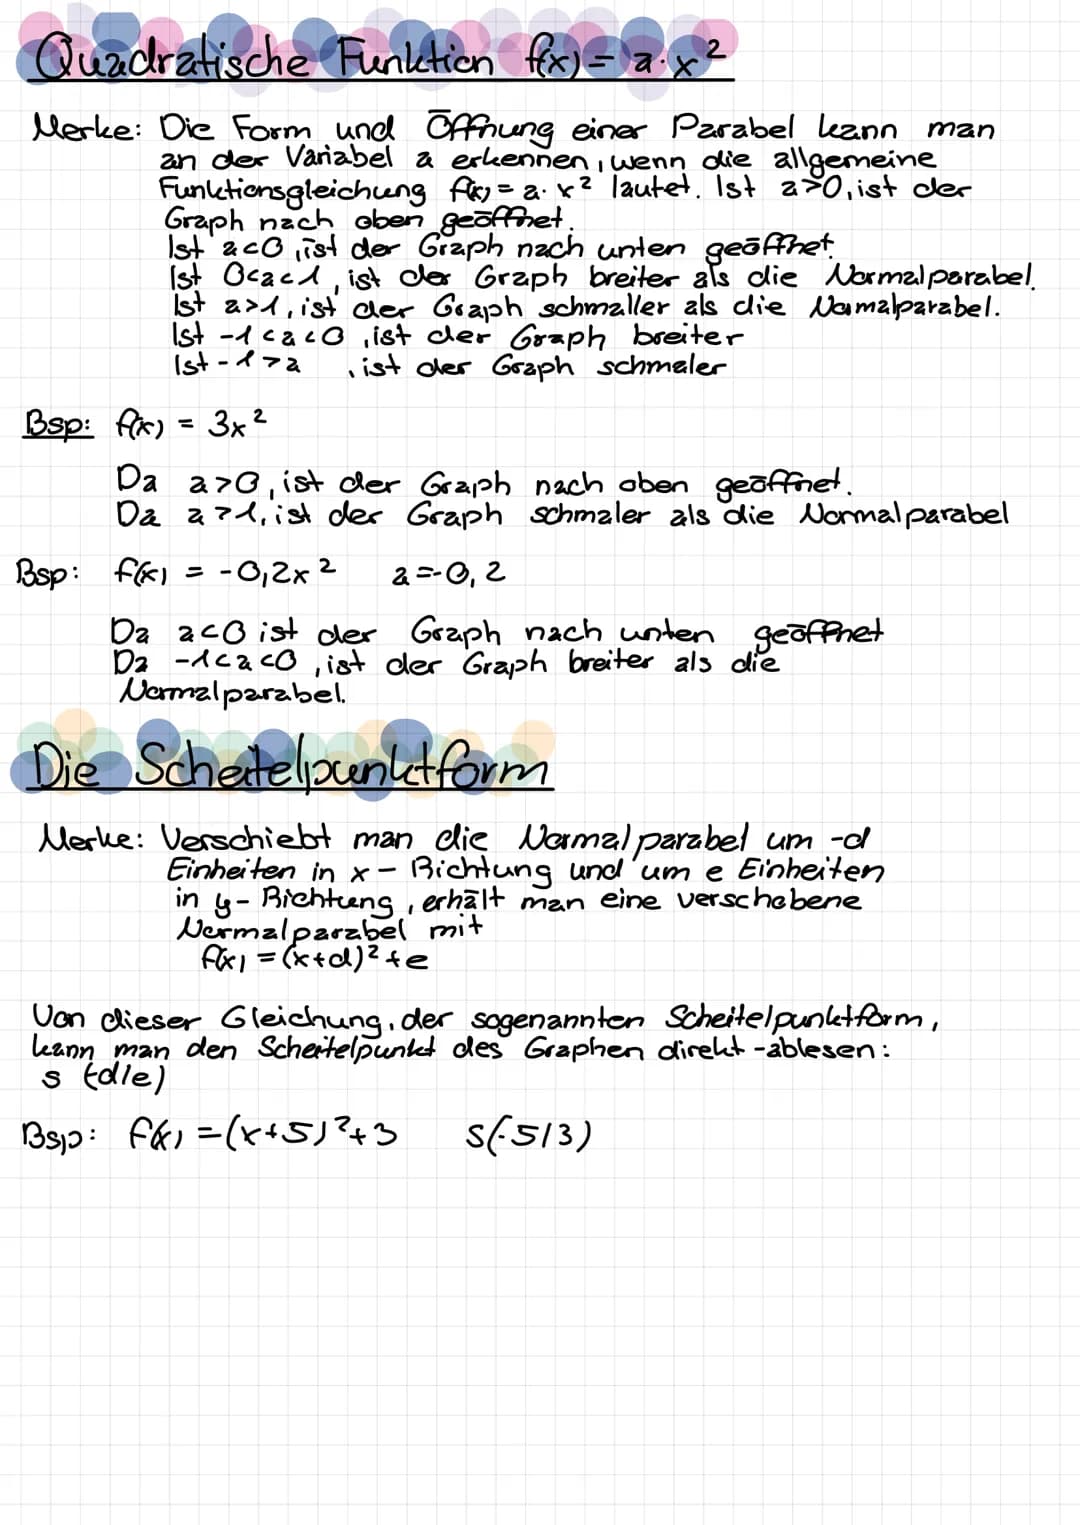 Quadratische Funktion f(x) = a·x²
Merke: Die Form und Öffnung einer Parabel kann man
an der Variabel a erkennen, wenn die allgemeine
Funktionsgleichung f(x) = a·x² lautet. Ist a>0, ist der
Graph nach oben geöffnet.
Ist a<0, ist der Graph nach unten geöffnet.
Ist 0<a<1, ist der Graph breiter als die Normalparabel.
Ist a>1, ist der Graph schmaller als die Normalparabel.
Ist -1<a<0, ist der Graph breiter
Ist -1>a , ist der Graph schmaler
Bsp: f(x) = 3x²
Da a>0, ist der Graph nach oben geöffnet.
Da a>1, ist der Graph schmaler als die Normalparabel
Bsp: f(x) = -0,2x² a=-0,2
Da a<0 ist der Graph nach unten geöffnet
Da -1<a<0, ist der Graph breiter als die
Normalparabel.
Die Scheitelpunktform
Merke: Verschiebt man die Normalparabel um -d
Einheiten in x-Richtung und um e Einheiten
in y-Richtung, erhält man eine verschobene
Normalparabel mit
f(x) = (x+d)²+e
Von dieser Gleichung, der sogenannten Scheitelpunktform,
kann man den Scheitelpunkt des Graphen direkt -ablesen:
S (-d|e)
Bsp: f(x) = (x+5)²+3 S(-5|3)